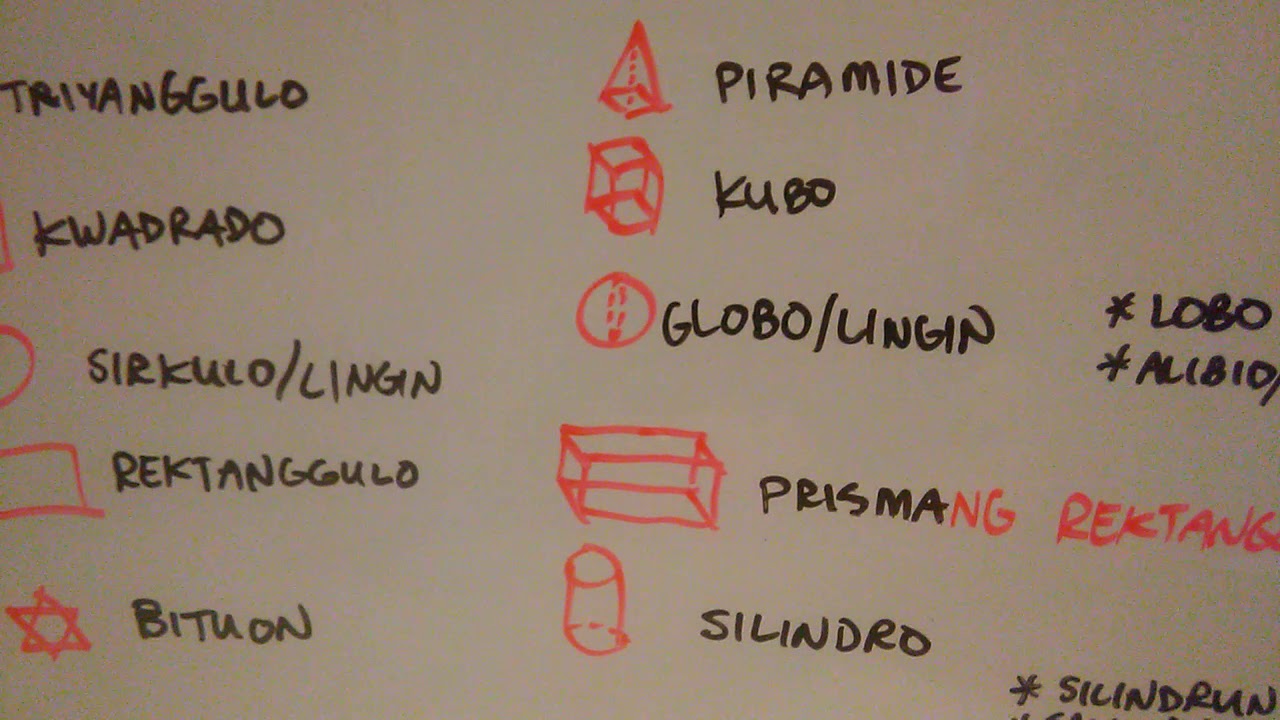 TRIYANGGULO
KWADRADO
SIRKULO/LINGIN
REKTANGGULO
BITUON
PIRAMIDE
KUBO
GLOBO/LINGIN
* LOBO
* ALIBIO/
PRISMANG REKTANG
SILINDRO
* SILINDRUN